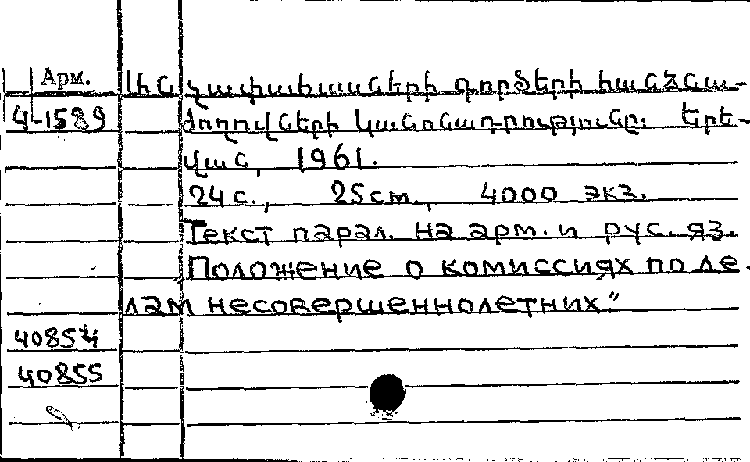 Арм. Անչափահասների գործերի հանձնա-
4-1589 ժողովների կանոնադրությունը. Երե-
վան, 1961.
24 с., 25 см., 4000 экз.
Текст парал. на арм. и рус. яз.
Положение о комиссиях по де-
лам несовершеннолетних"
40854
40855